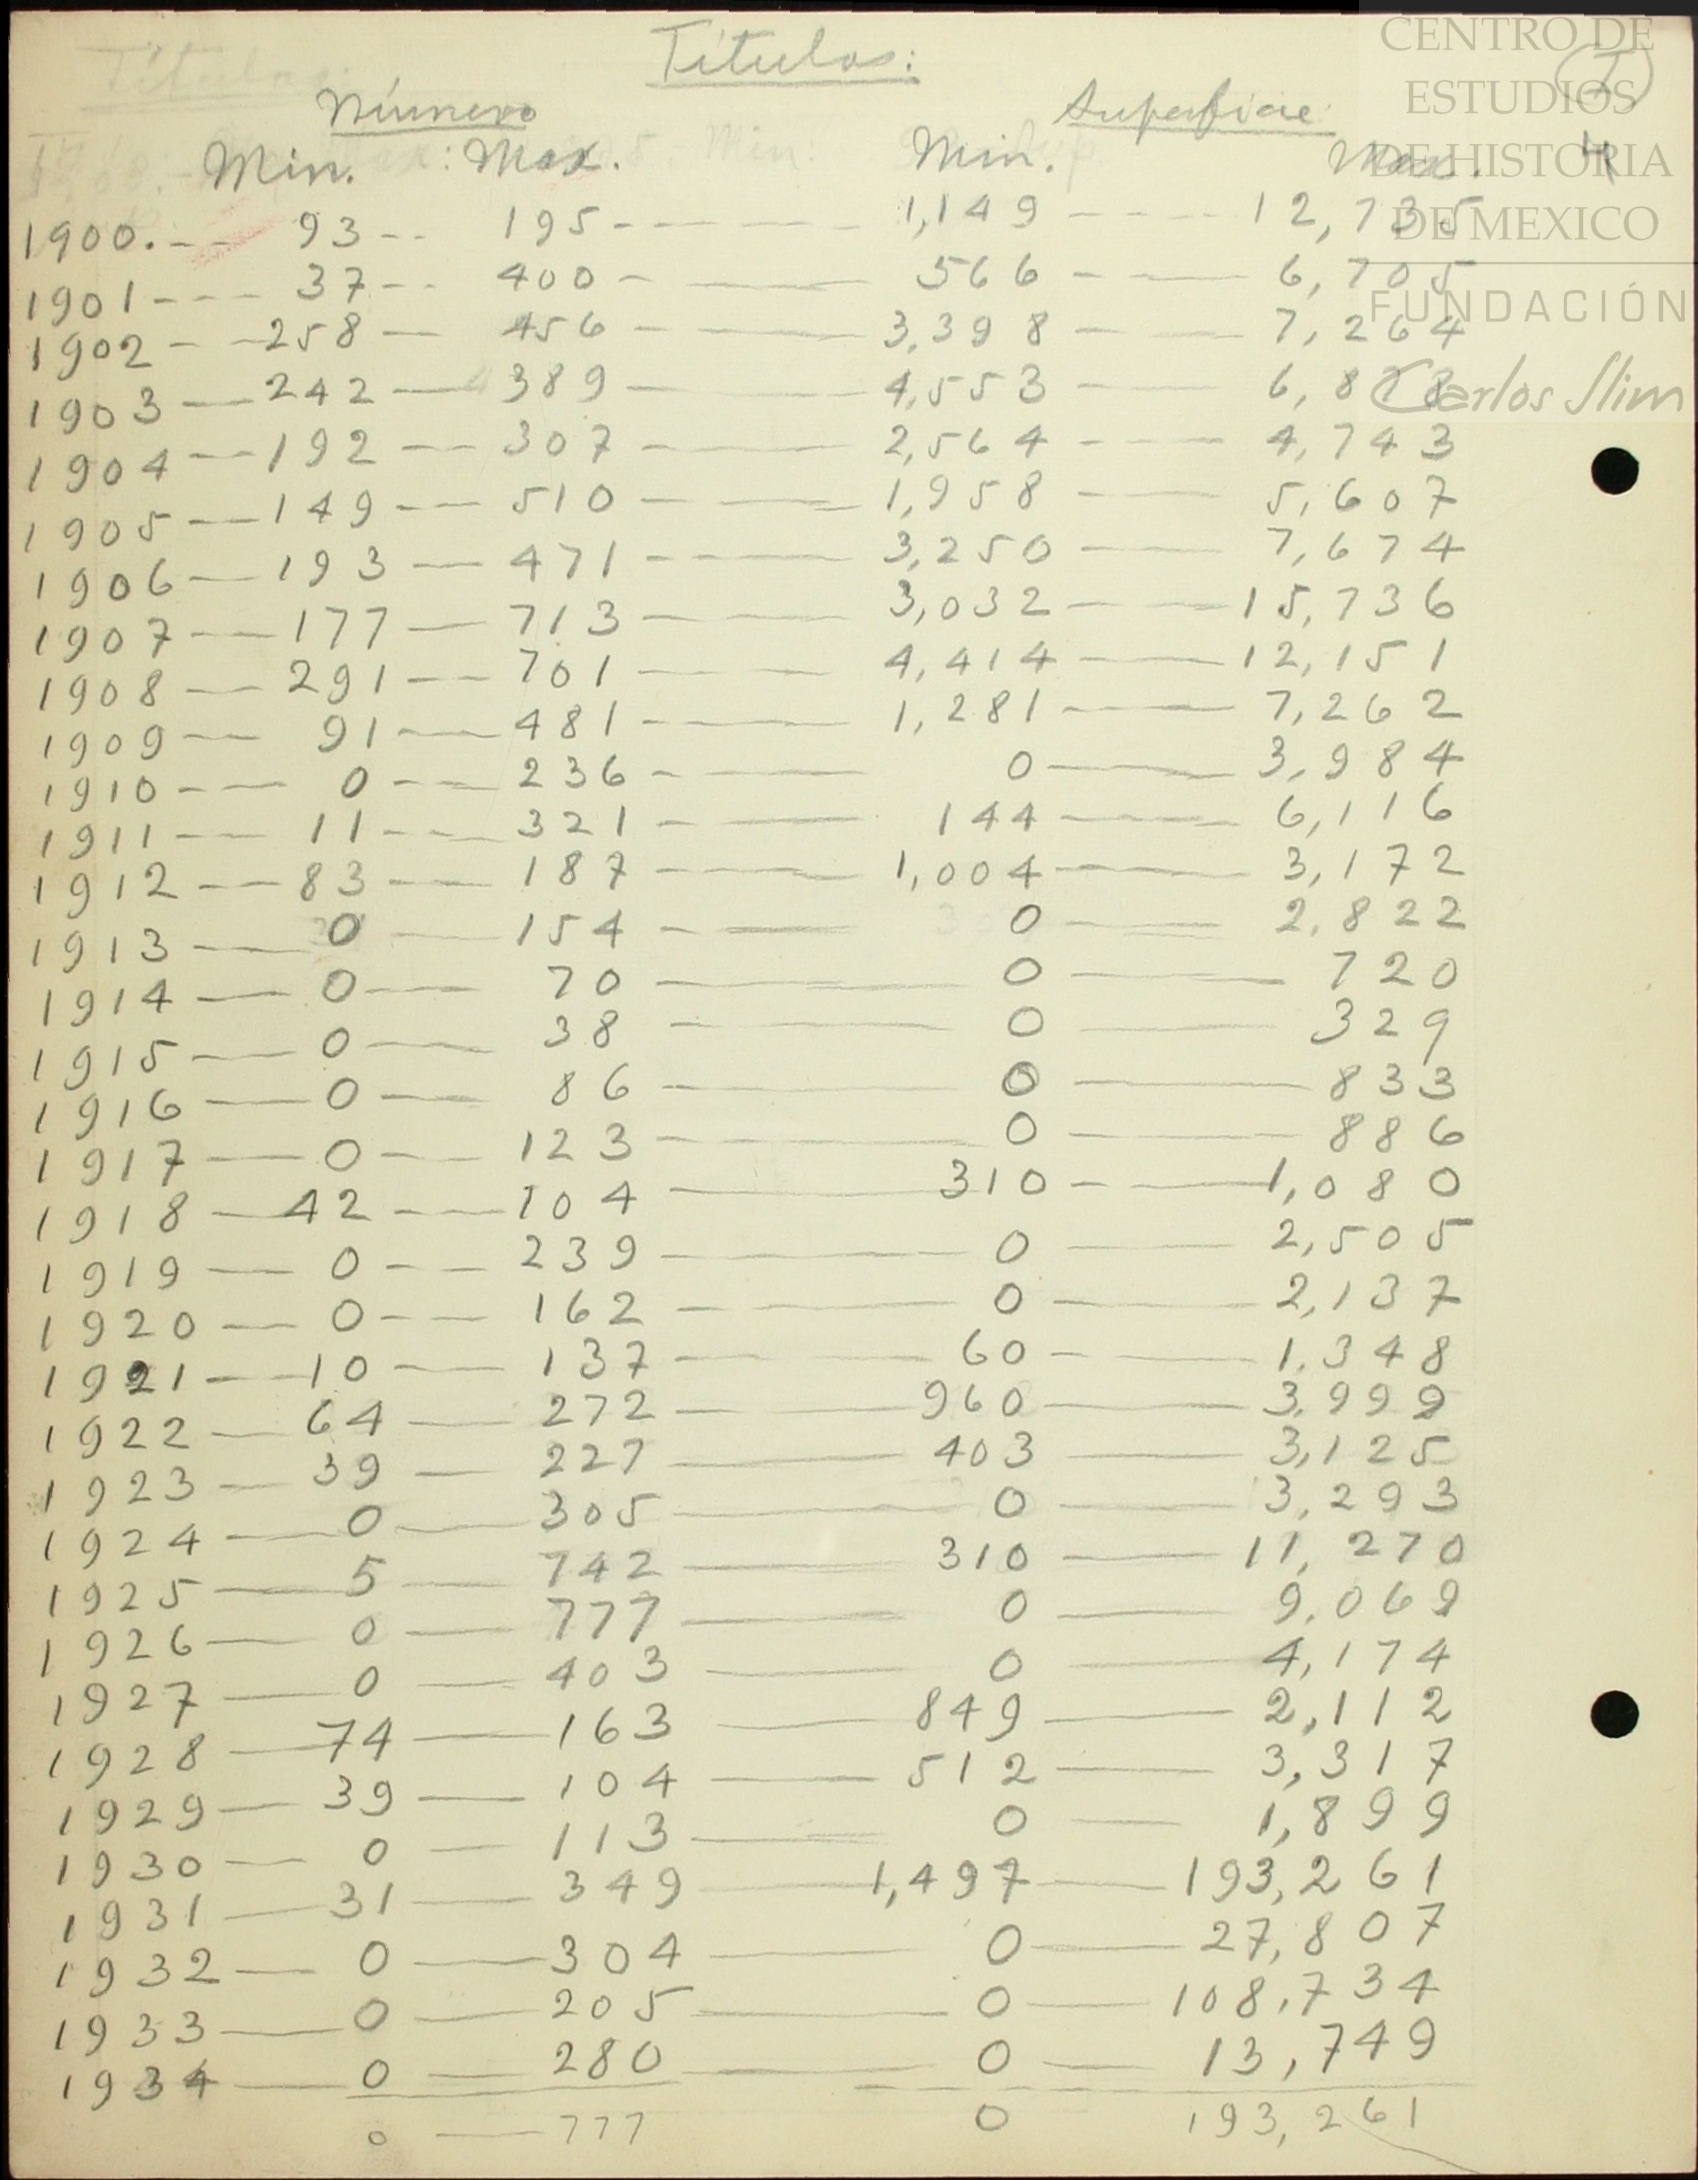 Títulos:
Número Superficie:
Min. Max. Min. Max.
1900. -- 93 -- 195 ---- 1,149 ---- 12,735
1901 --- 37 -- 400 -- 566 -- 6,705
1902 -- 258 -- 456 -- 3,398 -- 7,264
1903 -- 242 -- 389 -- 4,553 -- 6,878
1904 -- 192 -- 307 -- 2,564 --- 4,743
1905 -- 149 -- 510 -- 1,958 -- 5,607
1906 -- 193 -- 471 -- 3,250 -- 7,674
1907 -- 177 -- 713 -- 3,032 -- 15,736
1908 -- 291 -- 701 -- 4,414 -- 12,151
1909 -- 91 -- 481 -- 1,281 -- 7,262
1910 -- 0 -- 236 -- 0 -- 3,984
1911 -- 11 -- 321 -- 144 -- 6,116
1912 -- 83 -- 187 -- 1,004 -- 3,172
1913 -- 0 -- 154 -- 0 -- 2,822
1914 -- 0 -- 70 -- 0 -- 720
1915 -- 0 -- 38 -- 0 -- 329
1916 -- 0 -- 86 -- 0 -- 833
1917 -- 0 -- 123 -- 0 -- 886
1918 -- 42 -- 104 -- 310 -- 1,080
1919 -- 0 -- 239 -- 0 -- 2,505
1920 -- 0 -- 162 -- 0 -- 2,137
1921 -- 10 -- 137 -- 60 -- 1,348
1922 -- 64 -- 272 -- 960 -- 3,999
1923 -- 39 -- 227 -- 403 -- 3,125
1924 -- 0 -- 305 -- 0 -- 3,293
1925 -- 5 -- 742 -- 310 -- 11,270
1926 -- 0 -- 777 -- 0 -- 9,069
1927 -- 0 -- 403 -- 0 -- 4,174
1928 -- 74 -- 163 -- 849 -- 2,112
1929 -- 39 -- 104 -- 512 -- 3,317
1930 -- 0 -- 113 -- 0 -- 1,899
1931 -- 31 -- 349 -- 1,497 -- 193,261
1932 -- 0 -- 304 -- 0 -- 27,807
1933 -- 0 -- 205 -- 0 -- 108,734
1934 -- 0 -- 280 -- 0 -- 13,749
0 -- 777 0 193,261
CENTRO DE
ESTUDIOS
DE HISTORIA
DE MEXICO
FUNDACIÓN
Carlos Slim